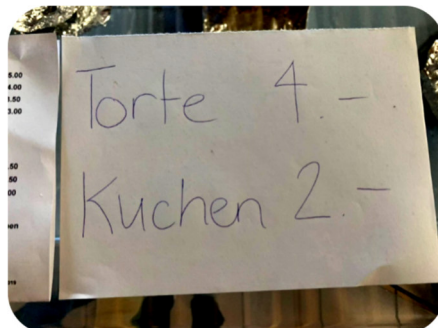 5.00
4.00
1.50
3.00
.50
50
00
Torte 4.-.
Kuchen 2.-